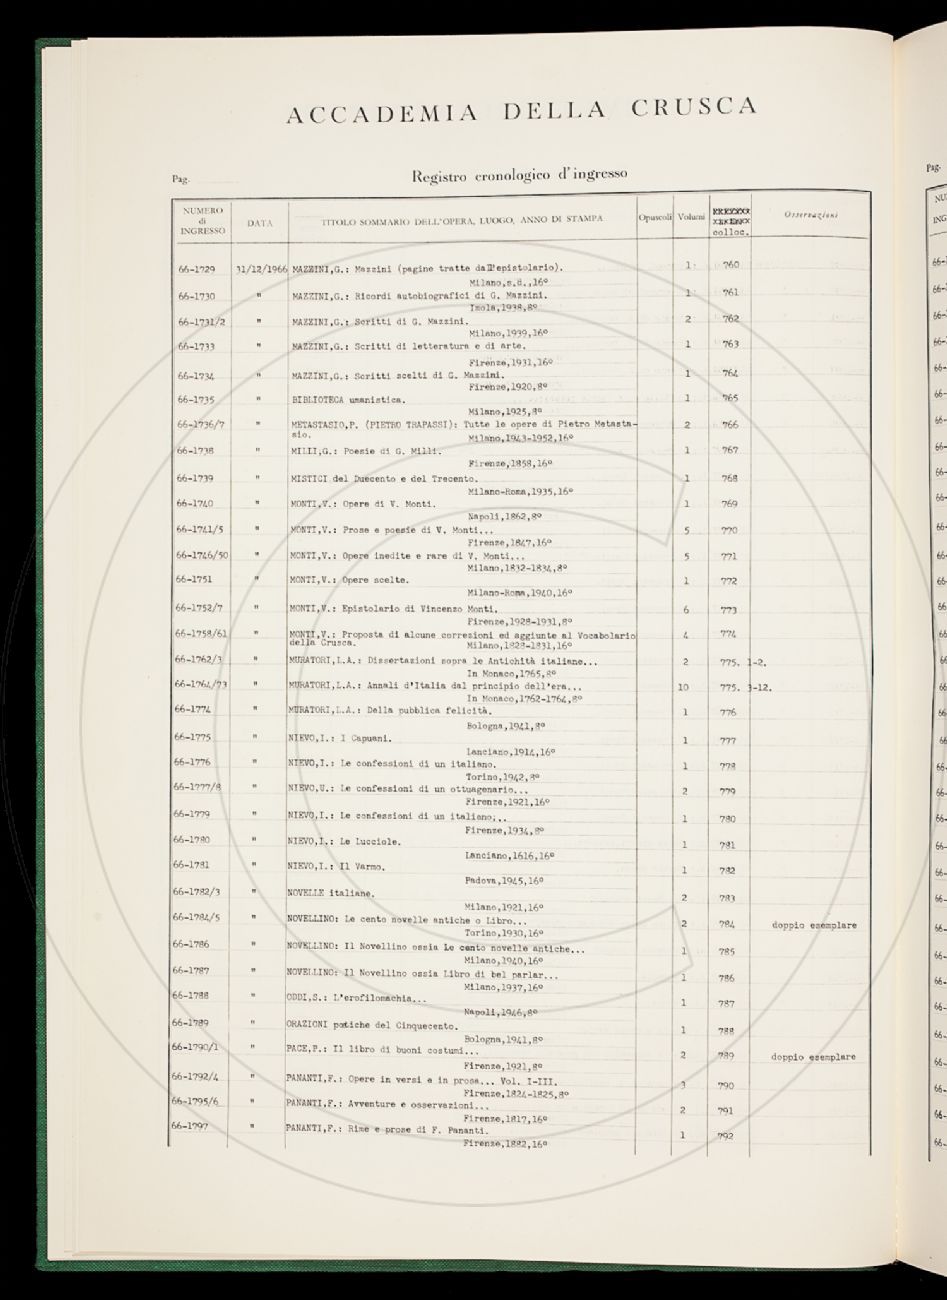 ACCADEMIA DELLA CRUSCA
Pag.
Registro cronologico d'ingresso
NUMERO di INGRESSO DATA TITOLO SOMMARIO DELL'OPERA, LUOGO, ANNO DI STAMPA Opuscoli Volumi colloc. Osservazioni
66-1729 31/12/1966 MAZZINI,G.: Mazzini (pagine tratte dall'epistolario). 1 760
Milano,s.d.,16º
66-1730 " MAZZINI,G.: Ricordi autobiografici di G. Mazzini. 1 761
Imola,1938,8º
66-1731/2 " MAZZINI,G.: Scritti di G. Mazzini. 2 762
Milano,1939,16º
66-1733 " MAZZINI,G.: Scritti di letteratura e di arte. 1 763
Firenze,1931,16º
66-1734 " MAZZINI,G.: Scritti scelti di G. Mazzini. 1 764
Firenze,1920,8º
66-1735 " BIBLIOTECA umanistica. 1 765
Milano,1925,8º
66-1736/7 " METASTASIO,P. (PIETRO TRAPASSI): Tutte le opere di Pietro Metasta- 2 766
sio. Milano,1943-1952,16º
66-1738 " MILLI,G.: Poesie di G. Milli. 1 767
Firenze,1858,16º
66-1739 " MISTICI del Duecento e del Trecento. 1 768
Milano-Roma,1935,16º
66-1740 " MONTI,V.: Opere di V. Monti. 1 769
Napoli,1862,8º
66-1741/5 " MONTI,V.: Prose e poesie di V. Monti... 5 770
Firenze,1847,16º
66-1746/50 " MONTI,V.: Opere inedite e rare di V. Monti... 5 771
Milano,1832-1834,8º
66-1751 " MONTI,V.: Opere scelte. 1 772
Milano-Roma,1940,16º
66-1752/7 " MONTI,V.: Epistolario di Vincenzo Monti. 6 773
Firenze,1928-1931,8º
66-1758/61 " MONTI,V.: Proposta di alcune correzioni ed aggiunte al Vocabolario 4 774
della Crusca. Milano,1828-1831,16º
66-1762/3 " MURATORI,L.A.: Dissertazioni sopra le Antichità italiane... 2 775. 1-2.
In Monaco,1765,8º
66-1764/73 " MURATORI,L.A.: Annali d'Italia dal principio dell'era... 10 775. 3-12.
In Monaco,1762-1764,8º
66-1774 " MURATORI,L.A.: Della pubblica felicità. 1 776
Bologna,1941,8º
66-1775 " NIEVO,I.: I Capuani. 1 777
Lanciano,1914,16º
66-1776 " NIEVO,I.: Le confessioni di un italiano. 1 778
Torino,1942,8º
66-1777/8 " NIEVO,U.: Le confessioni di un ottuagenario... 2 779
Firenze,1921,16º
66-1779 " NIEVO,I.: Le confessioni di un italiano;.. 1 780
Firenze,1934,8º
66-1780 " NIEVO,I.: Le Lucciole. 1 781
Lanciano,1616,16º
66-1781 " NIEVO,I.: Il Varmo. 1 782
Padova,1945,16º
66-1782/3 " NOVELLE italiane. 2 783
Milano,1921,16º
66-1784/5 " NOVELLINO: Le cento novelle antiche o Libro... 2 784 doppio esemplare
Torino,1930,16º
66-1786 " NOVELLINO: Il Novellino ossia Le cento novelle antiche... 1 785
Milano,1940,16º
66-1787 " NOVELLINO: Il Novellino ossia Libro di bel parlar... 1 786
Milano,1937,16º
66-1788 " ODDI,S.: L'erofilomachia... 1 787
Napoli,1946,8º
66-1789 " ORAZIONI poetiche del Cinquecento. 1 788
Bologna,1941,8º
66-1790/1 " PACE,P.: Il libro di buoni costumi... 2 789 doppio esemplare
Firenze,1921,8º
66-1792/4 " PANANTI,F.: Opere in versi e in prosa... Vol. I-III. 3 790
Firenze,1824-1825,8º
66-1795/6 " PANANTI,F.: Avventure e osservazioni... 2 791
Firenze,1817,16º
66-1797 " PANANTI,F.: Rime e prose di F. Pananti. 1 792
Firenze,1882,16º
Pag.